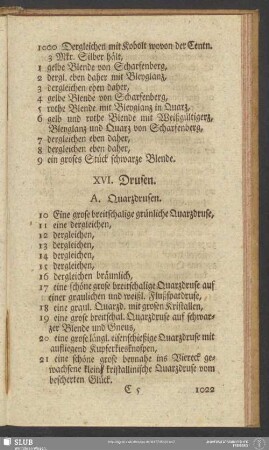 1000 Dergleichen mit Kobolt wovon der Centn.
3 Mkr. Silber hält,
1 gelbe Blende von Scharfenberg,
2 dergl. eben daher mit Bleyglanz,
3 dergleichen eben daher,
4 gelbe Blende von Scharfenberg,
5 rothe Blende mit Bleyglanz in Quarz,
6 gelb und rothe Blende mit Weißgültigerz,
Bleyglanz und Quarz von Scharfenberg,
7 dergleichen eben daher,
8 dergleichen eben daher,
9 ein groses Stück schwarze Blende.
XVI. Drusen.
A. Quarzdrusen.
10 Eine grose breitschalige grünliche Quarzdruse,
11 eine dergleichen,
12 dergleichen,
13 dergleichen,
14 dergleichen,
15 dergleichen,
16 dergleichen bräunlich,
17 eine schöne grose breitschalige Quarzdruse auf
einer graulichen und weißl. Flußspardruse,
18 eine graul. Quarzd. mit grosen Kristallen,
19 eine grose breitschal. Quarzdruse auf schwar-
zer Blende und Gneus,
20 eine grose längl. eisenschüßige Quarzdruse mit
aufliegend Kupferkiesknospen,
21 eine schöne grose beynahe ins Viereck ge-
wachsene kleine kristallinische Quarzdruse vom
bescherten Glück.
C 5
1022
SLUB